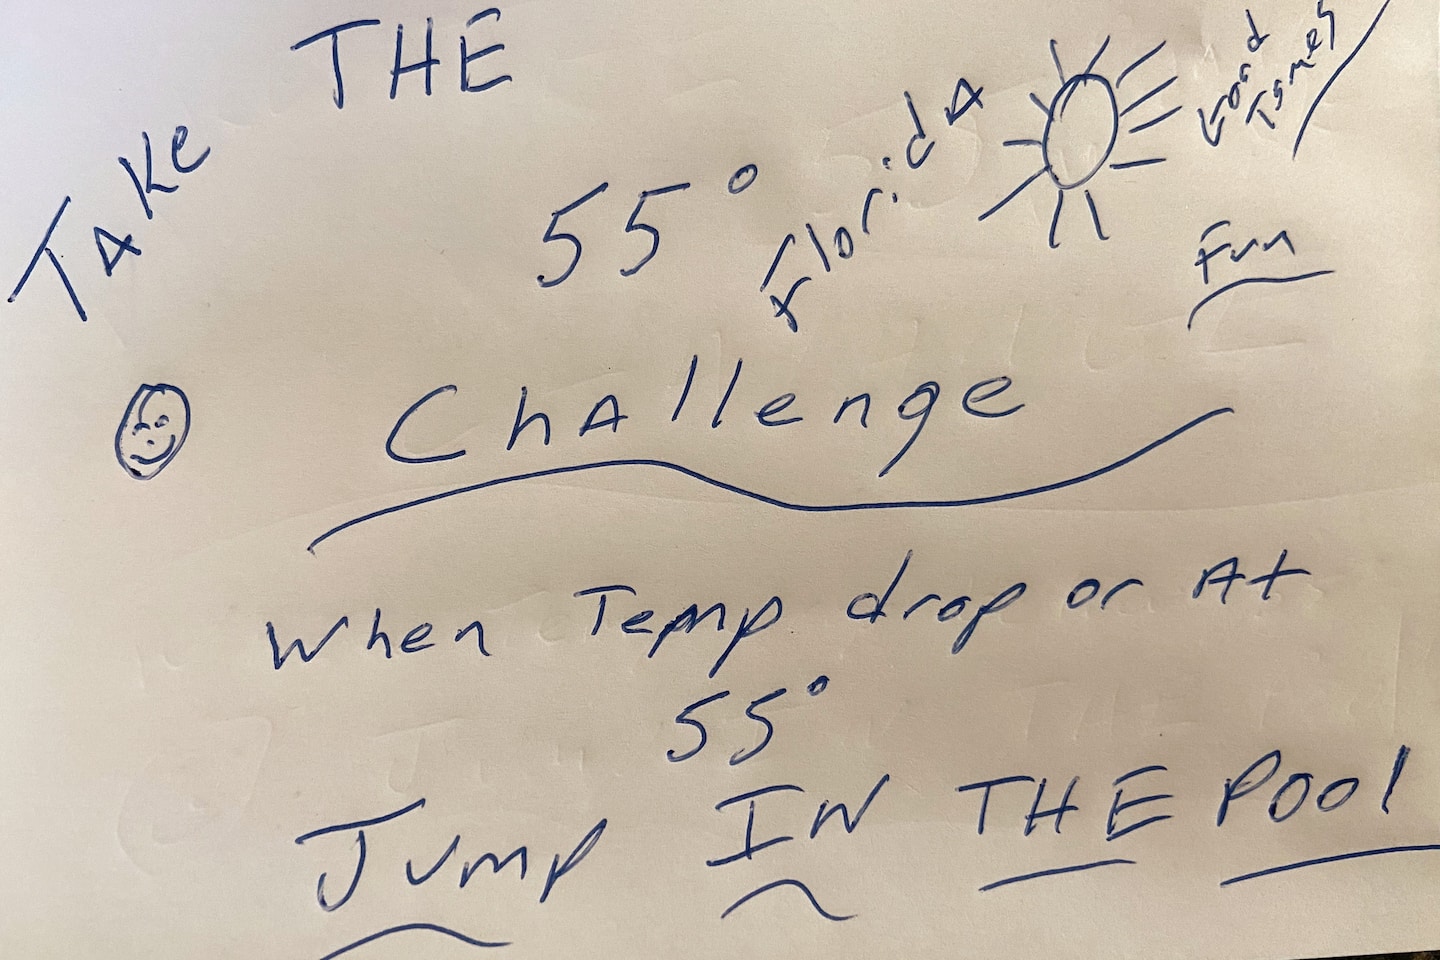 TAKe THE
55°
Florida
Good
Times
Fun
Challenge
When Temp drop or At
55°
Jump IN THE Pool